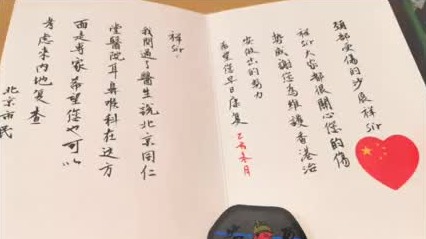 頸部受傷的沙展祥Sir
祥Sir大家都很關心您的傷
勢感謝您為維護香港治
安做出的努力
希望您早日康复
己亥未月
祥Sir.
我問過了醫生說北京同仁
堂醫院耳鼻喉科在这方
面是专家希望您也可以
考虑来内地复查
北京市民